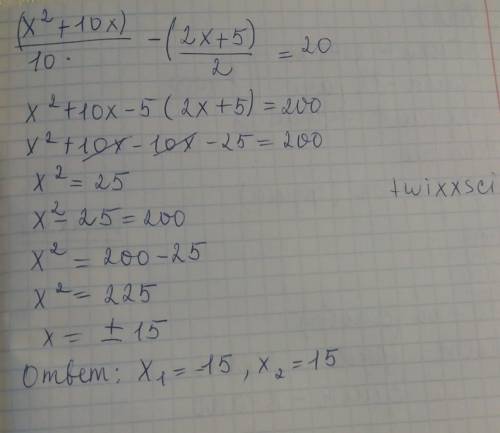 (x²+10x)/10 - (2x+5)/2 = 20
x²+10x-5(2x+5)=200
x²+10x-10x-25=200
x²=25
twixxsci
x²-25=200
x²=200-25
x²=225
x=±15
Ответ: x₁=-15, x₂=15